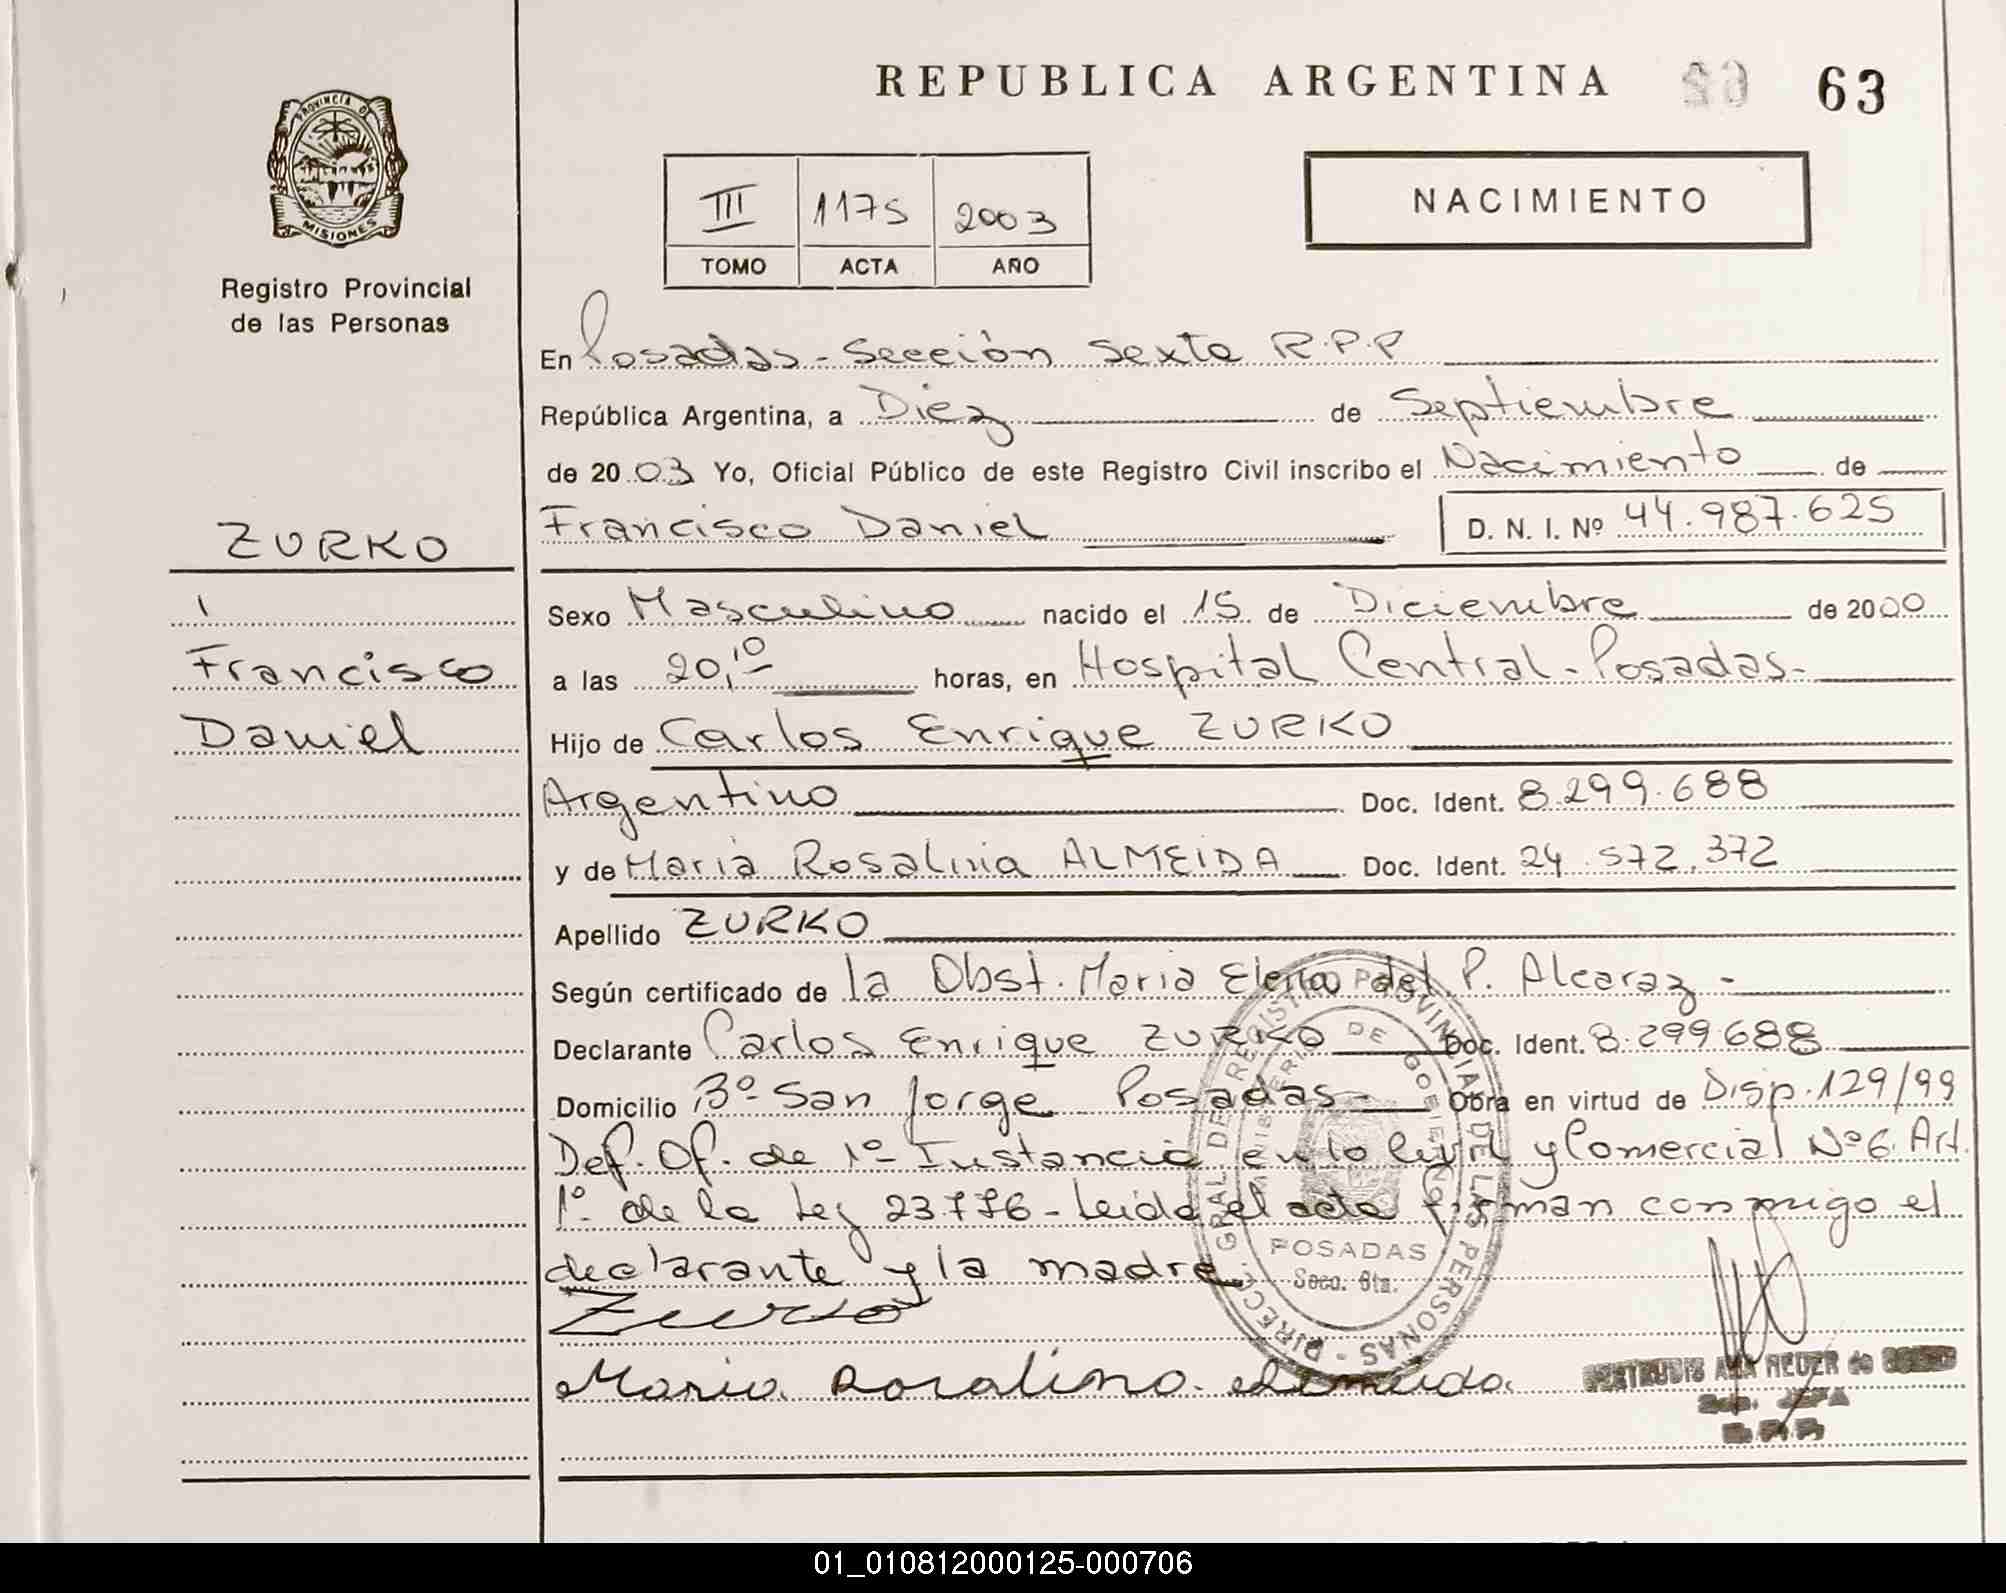 REPUBLICA ARGENTINA 63
PROVINCIA DE
MISIONES
Registro Provincial
de las Personas
III 1175 2003
TOMO ACTA AÑO
NACIMIENTO
En Posadas - Sección Sexta R.P.P
República Argentina, a Diez de Septiembre
de 20 03 Yo, Oficial Público de este Registro Civil inscribo el Nacimiento de
ZURKO
Francisco Daniel D. N. I. Nº 44.987.625
Sexo Masculino nacido el 15 de Diciembre de 2000
Francisco
a las 20,10 horas, en Hospital Central - Posadas -
Daniel
Hijo de Carlos Enrique ZURKO
Argentino Doc. Ident. 8.299.688
y de Maria Rosalina ALMEIDA Doc. Ident. 24.572.372
Apellido ZURKO
Según certificado de la Obst. Maria Elena del P. Alcaraz -
Declarante Carlos Enrique ZURKO Doc. Ident. 8.299.688
Domicilio Bº San Jorge Posadas - Obra en virtud de Disp. 129/99
Def. Of. de 1º Instancia en lo Civil y Comercial Nº 6. Art.
1º de la Ley 23.776 - Leida el acta firman conmigo el
declarante y la madre.
Zurko
Maria Rosalina Almeida
DIRECC. GRAL. DEL REGISTRO PROVINCIAL DE LAS PERSONAS -
MINISTERIO DE GOBIERNO
POSADAS
Secc. 6ta.
ANA REUER de
JEFA
01_010812000125-000706